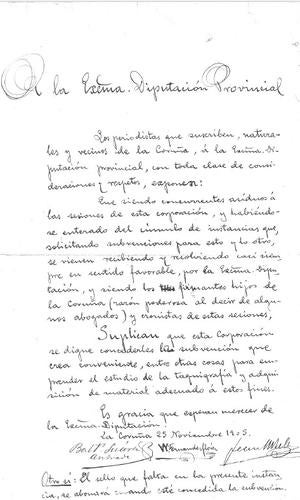 A la Excma. Diputación Provincial
Los periodistas que suscriben, natura-
les y vecinos de la Coruña, á la Excma. Di-
putación provincial, con toda clase de consi-
deraciones y respetos, exponen:
Que siendo concurrentes asiduos á
las sesiones de esta corporación, y habiéndo-
se enterado del cúmulo de instancias que,
solicitando subvenciones para esto y lo otro,
se vienen recibiendo y resolviendo casi siem
pre en sentido favorable, por la Excma. Dipu-
tación, y siendo los firmantes hijos de
la Coruña (razón poderosa al decir de algu-
nos abogados) y cronistas de estas sesiones,
Suplican que esta Corporación
se digne concederles la subvención que
crea conveniente, entre otras cosas para em-
prender el estudio de la taquigrafía y adqui-
sición de material adecuado á estos fines.
Es gracia que esperan merecer de
la Excma. Diputación.
La Coruña 25 Noviembre 1905.
Otro si: El sello que falta en la presente instan
cia, se abonará cuando esté concedida la subvención.